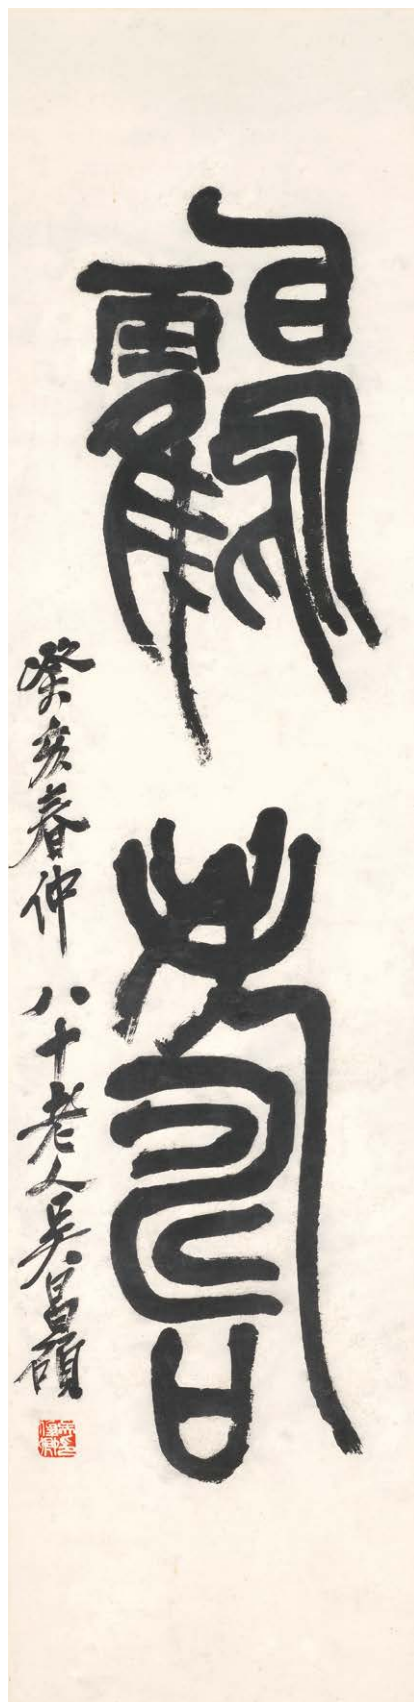 鶴壽
癸亥春仲八十老人吳昌碩